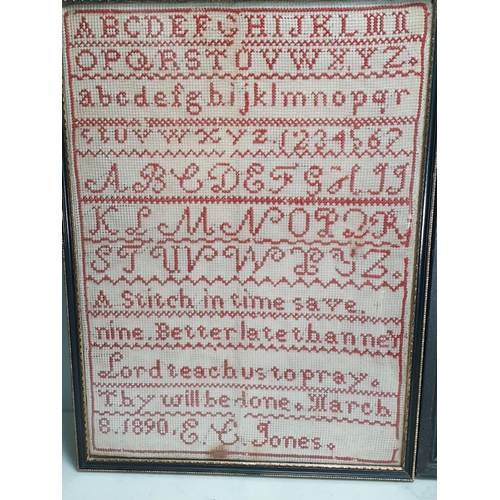 ABCDEFGHIJKLMN
OPQRSTUVWXYZ.
abcdefghijklmnopqr
stuvwxyz.1234567
ABCDEFGHIJ
KLMNOPQR
STUVWXYZ.
A Stitch in time save
nine. Better late than nev
Lord teach us to pray.
Thy will be done. March
8. 1890. E. E. Jones.